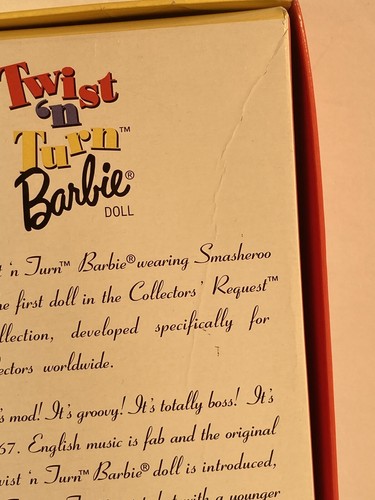 Twist
'n
Turn™
Barbie®
DOLL
'n Turn™ Barbie® wearing Smasheroo
first doll in the Collectors' Request™
developed specifically for
worldwide.
mod! It's groovy! It's totally boss! It's
67. English music is fab and the original
'n Turn™ Barbie® doll is introduced,
with a younger